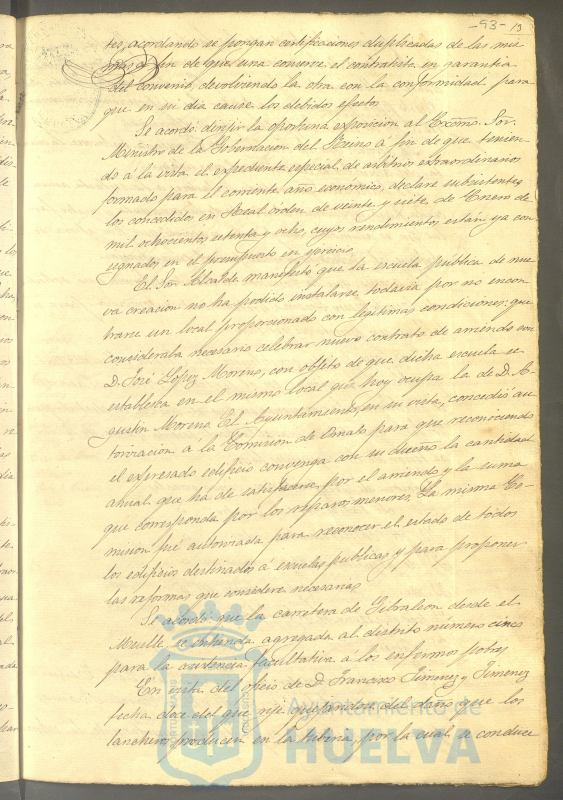 -93- 13
tes, acordando se pongan certificaciones duplicadas de las mis
mas a fin de que una conserve el contratista en garantia
del convenio, devolviendo la otra con la conformidad para
que en su dia cause los debidos efectos
Se acordó dirigir la oportuna exposicion al Excmo. Sor.
Ministro de la Gobernacion del Reino á fin de que tenien
do á la vista el expediente especial de arbitrios extraordinarios
formado para el corriente año económico, declare subsistentes
los concedidos en Real órden de veinte y siete de Enero de
mil ochocientos setenta y ocho, cuyos rendimientos estan ya con
signados en el presupuesto en ejercicio
El Sor. Alcalde manifestó que la escuela publica de nue
va creacion no ha podido instalarse todavia por no encon
trarse un local proporcionado con legítimas condiciones: que
consideraba necesario celebrar nuevo contrato de arriendo con
D. José Lopez Moreno, con objeto de que dicha escuela se
establezca en el mismo local que hoy ocupa la de D. A
gustin Moreno. El Ayuntamiento, en su vista, concedió au
torizacion á la Comision de Ornato para que reconociendo
el expresado edificio convenga con su dueño la cantidad
anual que ha de satisfacerse por el arriendo y la suma
que corresponda por los reparos menores. La misma Co
mision fué autorizada para reconocer el estado de todos
los edificios destinados á escuelas publicas y para proponer
las reformas que considere necesarias
Se acordó que la carretera de Gibraleon desde el
Muelle se entienda agregada al distrito número cinco
para la asistencia facultativa á los enfermos pobres
En vista del oficio de D. Francisco Jimenez y Jimenez
fecha doce del que rije quejandose del daño que los
lancheros producen en la ribera, por la cual se conduce
Ayuntamiento de
HUELVA